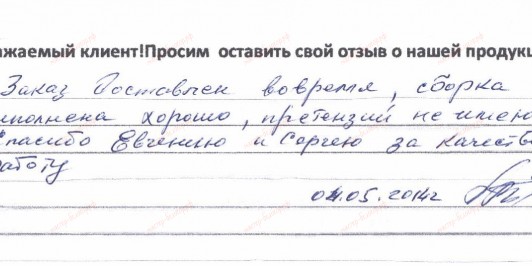 ажаемый клиент!Просим оставить свой отзыв о нашей продукц
Заказ доставлен вовремя, сборка
ыполнена хорошо, претензий не имею
Спасибо Евгению и Сергею за качестве
работу
04.05.2014г